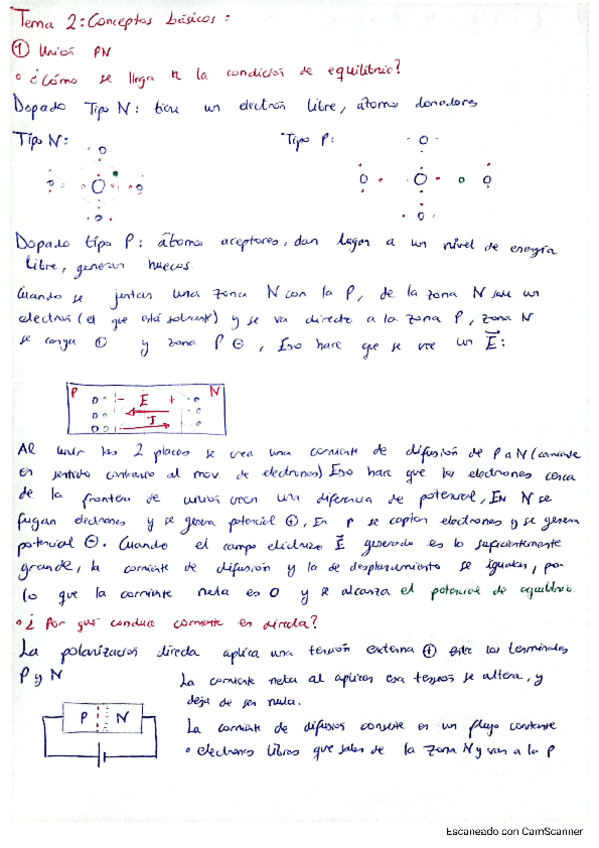 Tema 2: Conceptos básicos:
① Unión PN
• ¿Cómo se llega a la condición de equilibrio?
Dopado Tipo N: tiene un electrón libre, átomos donadores
Tipo N:
Tipo P:
Dopado tipo P: átomos aceptores, dan lugar a un nivel de energía
libre, generan huecos
Cuando se juntan una zona N con la P, de la zona N sale un
electrón (el que está sobrante) y se va directo a la zona P, zona N
se carga ⊕ y zona P ⊖, Eso hace que se cree un E:
P - E + N
J
Al unir las 2 placas se crea una corriente de difusión de P a N (corriente
en sentido contrario al mov de electrones) Eso hace que los electrones cerca
de la frontera de unión creen una diferencia de potencial, En N se
fugan electrones y se genera potencial ⊕, En P se captan electrones y se genera
potencial ⊖. Cuando el campo eléctrico E generado es lo suficientemente
grande, la corriente de difusión y la de desplazamiento se igualan, por
lo que la corriente neta es 0 y se alcanza el potencial de equilibrio.
• ¿Por qué conduce corriente en directa?
La polarización directa aplica una tensión externa ⊕ entre los terminales
P y N
La corriente neta al aplicar esa tensión se altera, y
deja de ser nula.
P N
La corriente de difusión consiste en un flujo constante
• electrones libres que salen de la zona N y van a la P
Escaneado con CamScanner